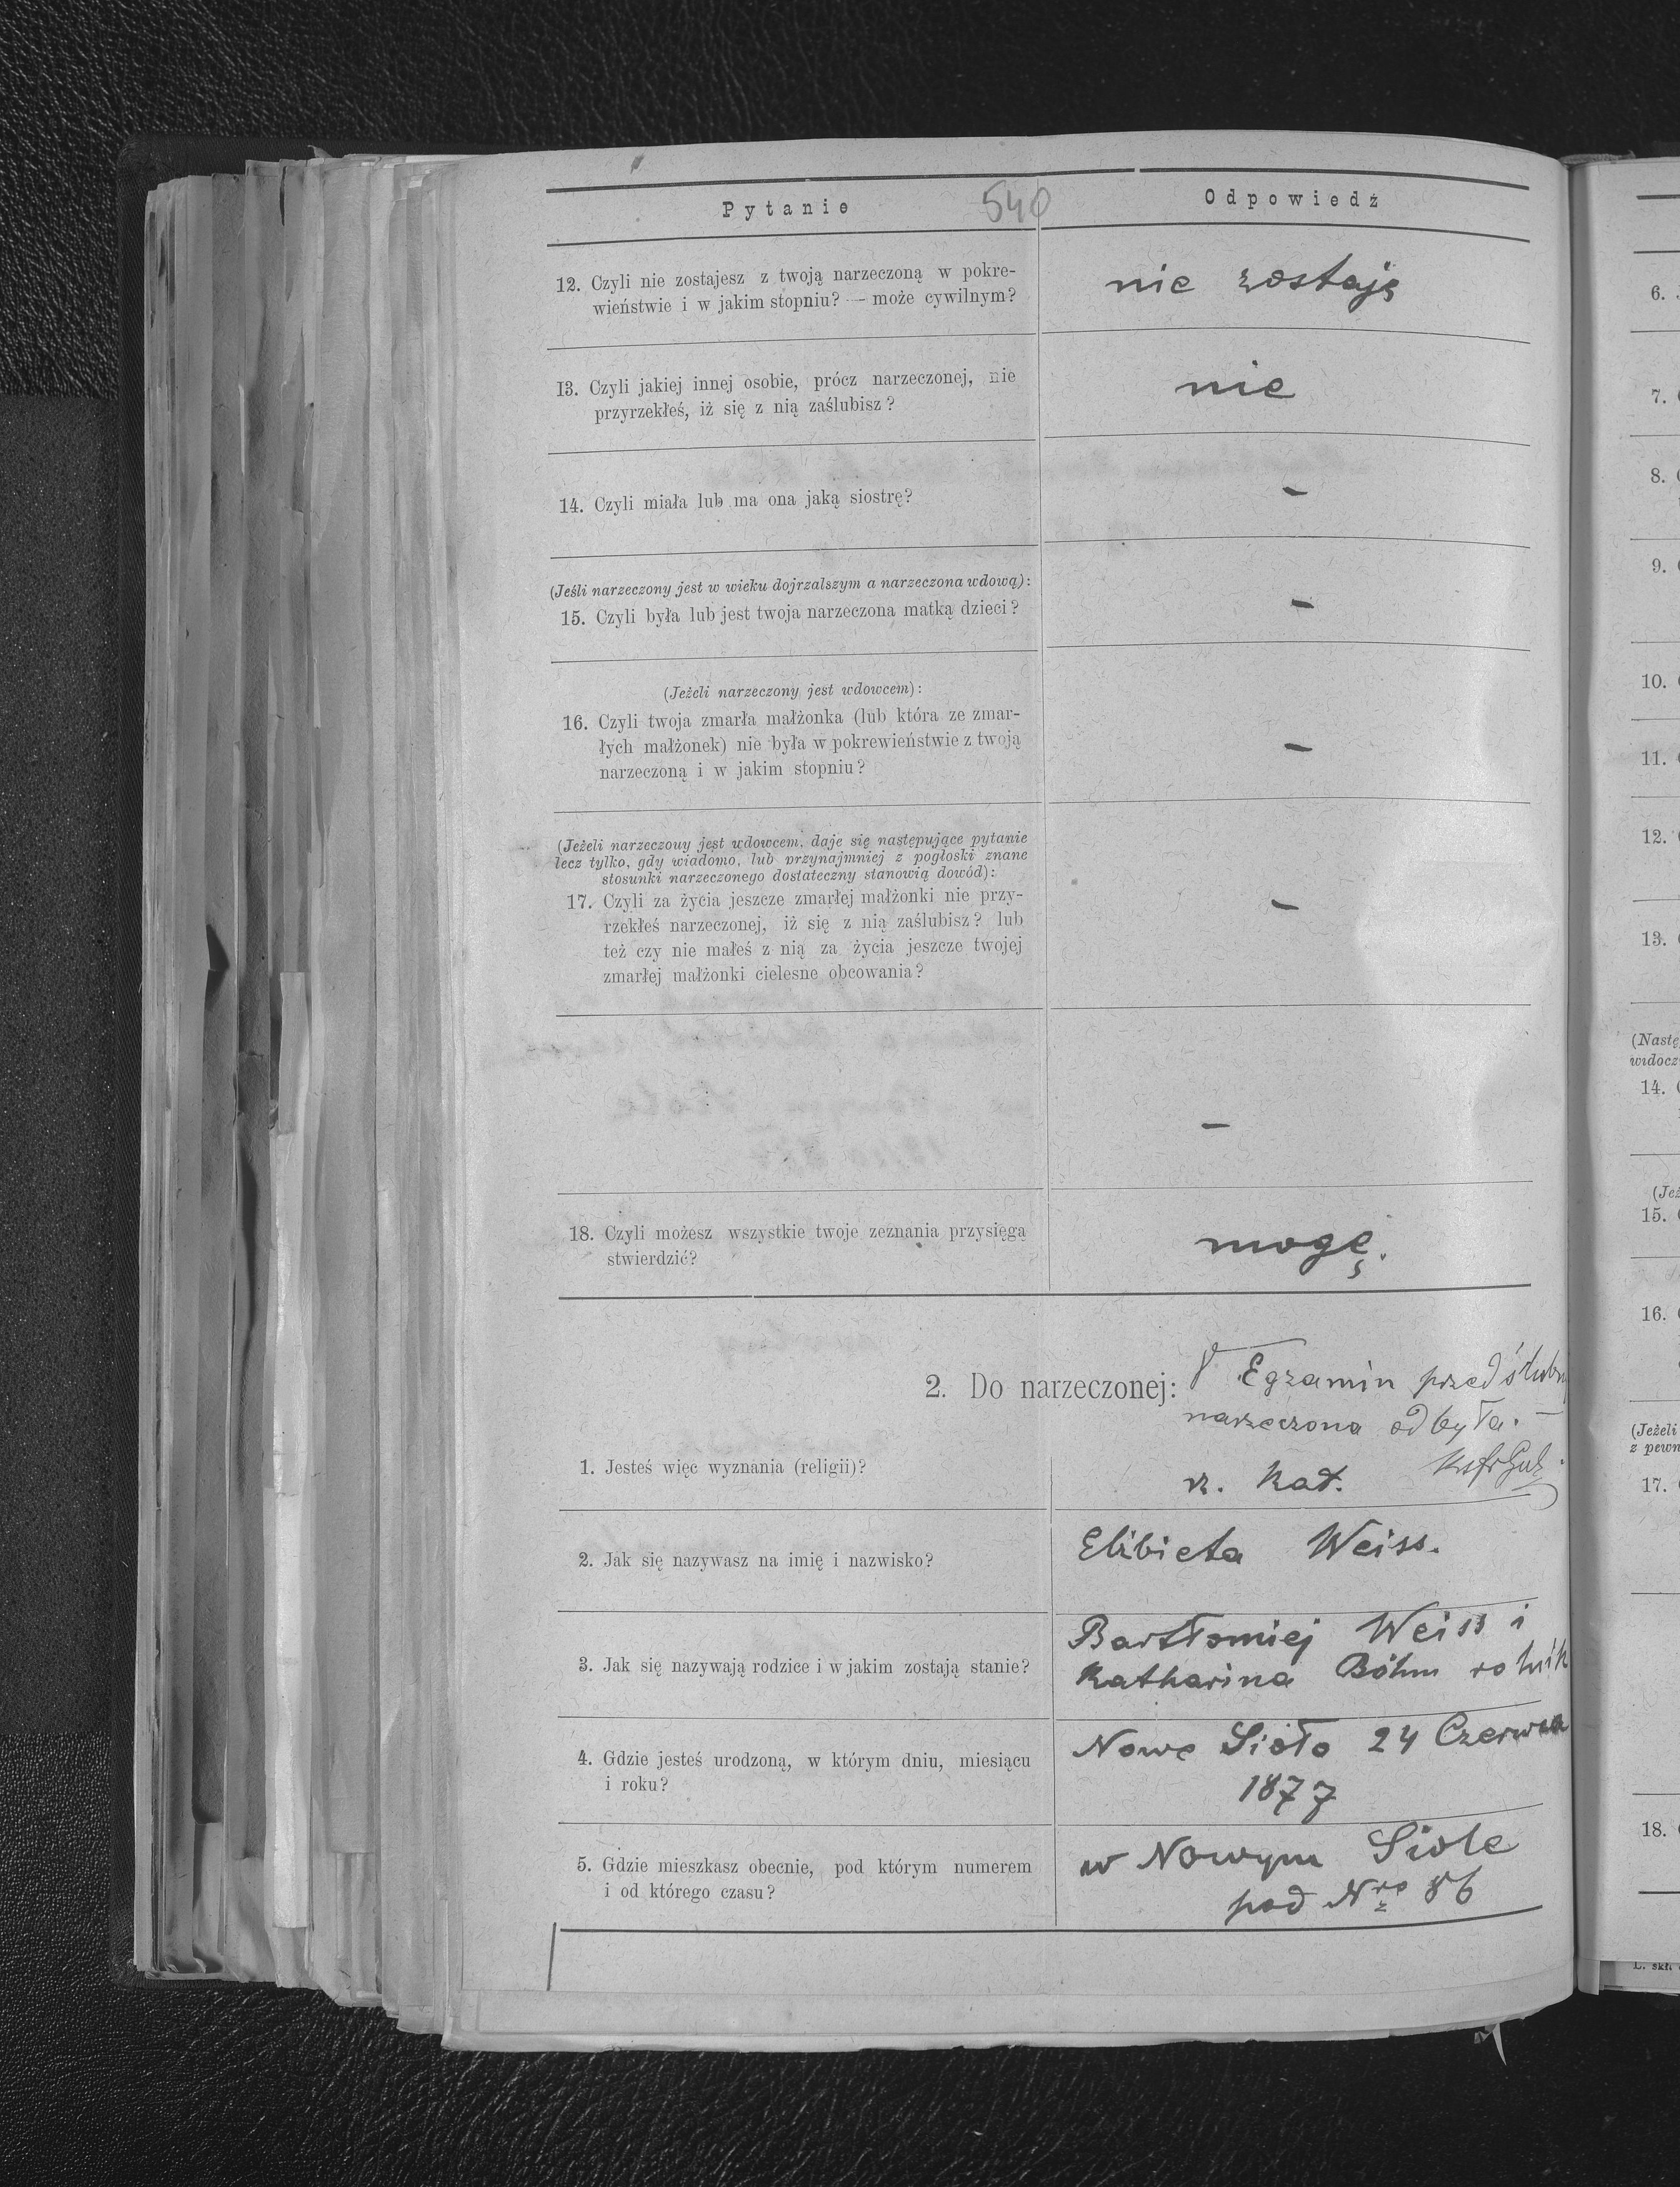 Pytanie
540
Odpowiedź
12. Czyli nie zostajesz z twoją narzeczoną w pokre-
wieństwie i w jakim stopniu? — może cywilnym?
nie zostaję
13. Czyli jakiej innej osobie, prócz narzeczonej, nie
przyrzekłeś, iż się z nią zaślubisz?
nie
14. Czyli miała lub ma ona jaką siostrę?
–
(Jeśli narzeczony jest w wieku dojrzalszym a narzeczona wdową):
15. Czyli była lub jest twoja narzeczona matką dzieci?
–
(Jeżeli narzeczony jest wdowcem):
16. Czyli twoja zmarła małżonka (lub która ze zmar-
łych małżonek) nie była w pokrewieństwie z twoją
narzeczoną i w jakim stopniu?
–
(Jeżeli narzeczony jest wdowcem, daje się następujące pytanie
lecz tylko, gdy wiadomo, lub przynajmniej z pogłoski znane
stosunki narzeczonego dostateczny stanowią dowód):
17. Czyli za życia jeszcze zmarłej małżonki nie przy-
rzekłeś narzeczonej, iż się z nią zaślubisz? lub
też czy nie małeś z nią za życia jeszcze twojej
zmarłej małżonki cielesne obcowania?
–
–
18. Czyli możesz wszystkie twoje zeznania przysięgą
stwierdzić?
mogę.
2. Do narzeczonej:
Egzamin przedślubny
narzeczona odbyła. —
1. Jesteś więc wyznania (religii)?
r. kat.
2. Jak się nazywasz na imię i nazwisko?
Elżbieta Weiss.
3. Jak się nazywają rodzice i w jakim zostają stanie?
Bartłomiej Weiss i
Katharina Böhm rolnik
4. Gdzie jesteś urodzoną, w którym dniu, miesiącu
i roku?
Nowe Sioło 24 Czerwca
1877
5. Gdzie mieszkasz obecnie, pod którym numerem
i od którego czasu?
w Nowym Siole
pod Nro 86
6.
7.
8.
9.
10.
11.
12.
13.
(Nastę
widocz
14.
(Jeż
15.
16.
(Jeżeli
z pewn
17.
18.
L. skł.